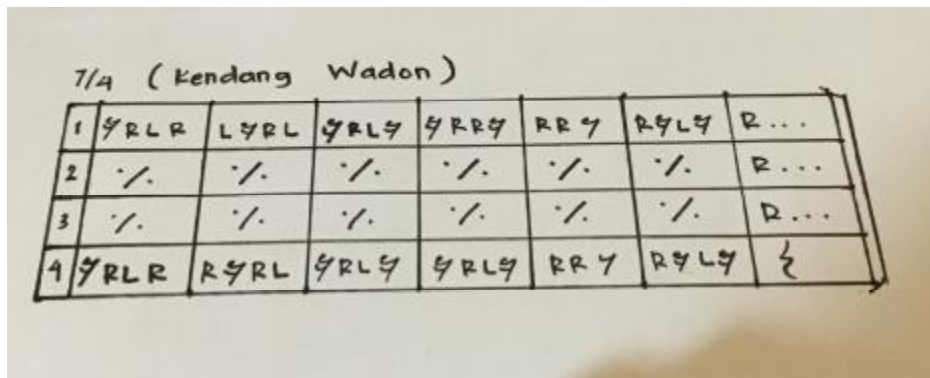 7/4 (Kendang Wadon)
1 𝄿RLR L𝄿RL 𝄿RL𝄿 𝄿RR𝄿 RR𝄾 R𝄿L𝄿 R...
2 ·/. ·/. ·/. ·/. ·/. ·/. R...
3 ·/. ·/. ·/. ·/. ·/. ·/. R...
4 𝄿RLR R𝄿RL 𝄿RL𝄿 𝄿RL𝄿 RR𝄾 R𝄿L𝄿 𝄽